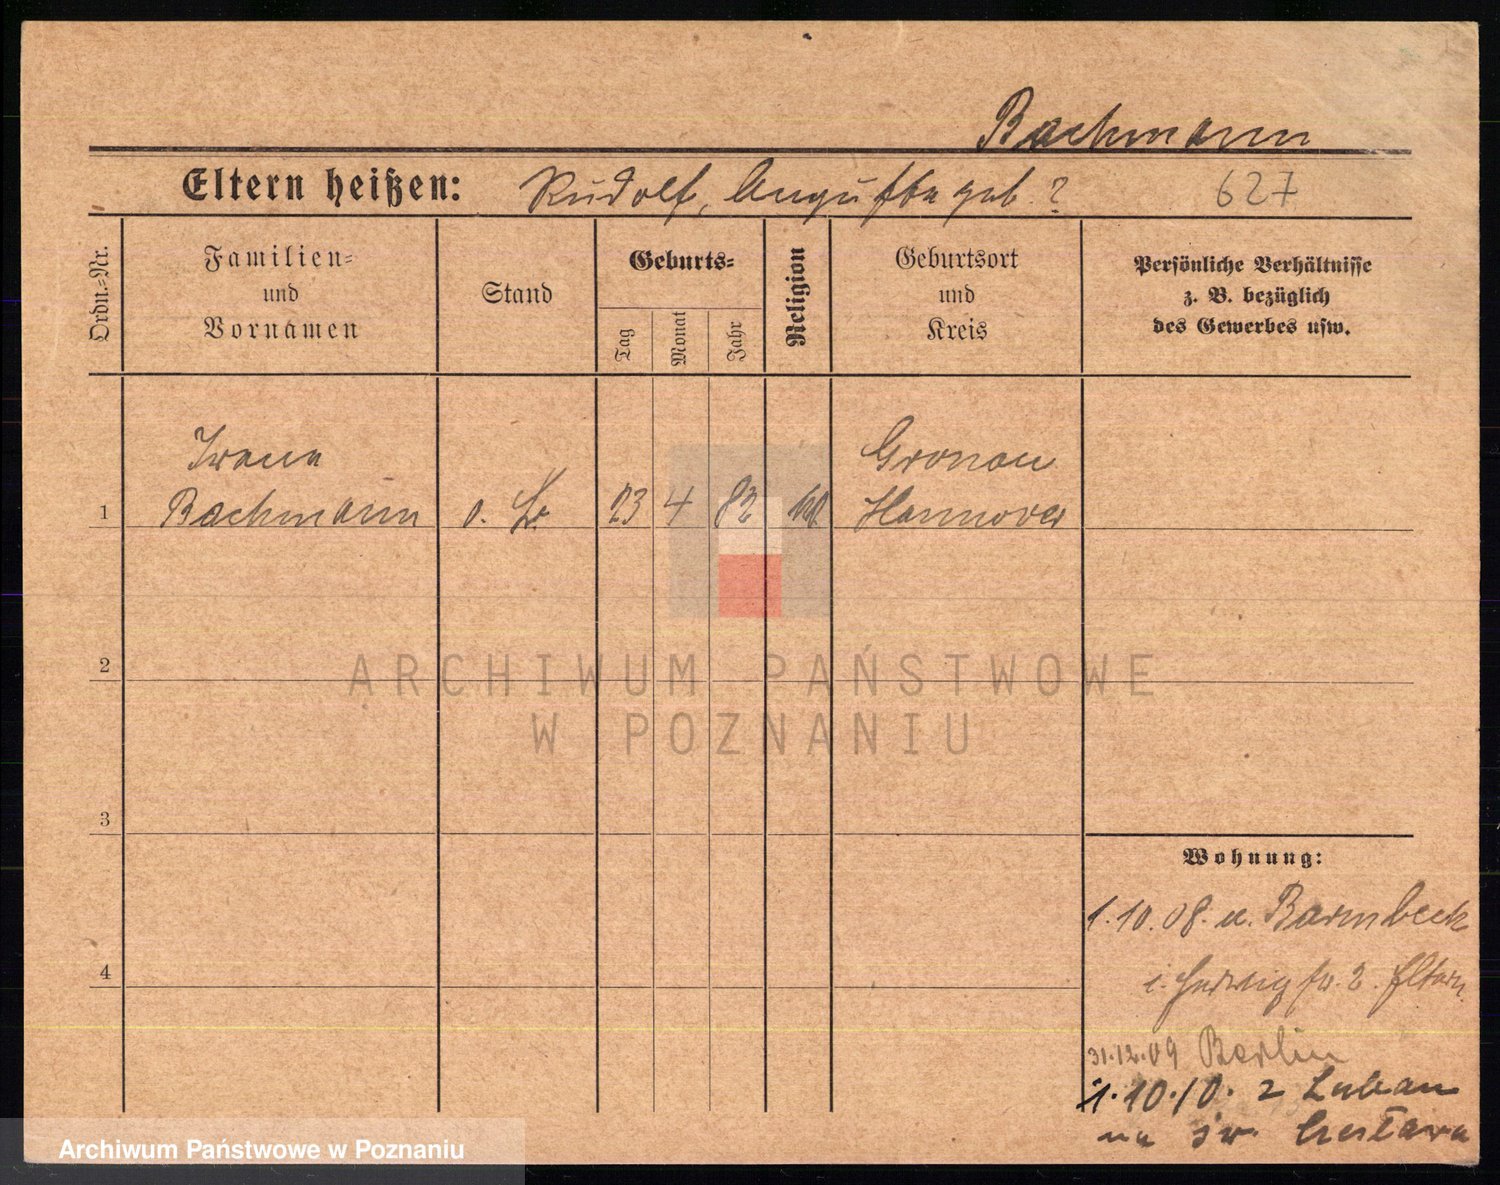 Bachmann
Eltern heißen: Rudolf, Auguste geb. ? 627
Ordn.-Nr.
Familien-
und
Vornamen
Stand
Geburts-
Tag
Monat
Jahr
Religion
Geburtsort
und
Kreis
Persönliche Verhältnisse
z. B. bezüglich
des Gewerbes usw.
Gronau
1 Bachmann o. 23 4 82 Hannover
2
3
4
Wohnung:
1.10.08. a. Barmbeck
i. Hedwig 2. Eltern
31.12.09 Berlin
1.10.10. z Luban
na św. Gustawa
ARCHIWUM PAŃSTWOWE
W POZNANIU
Archiwum Państwowe w Poznaniu